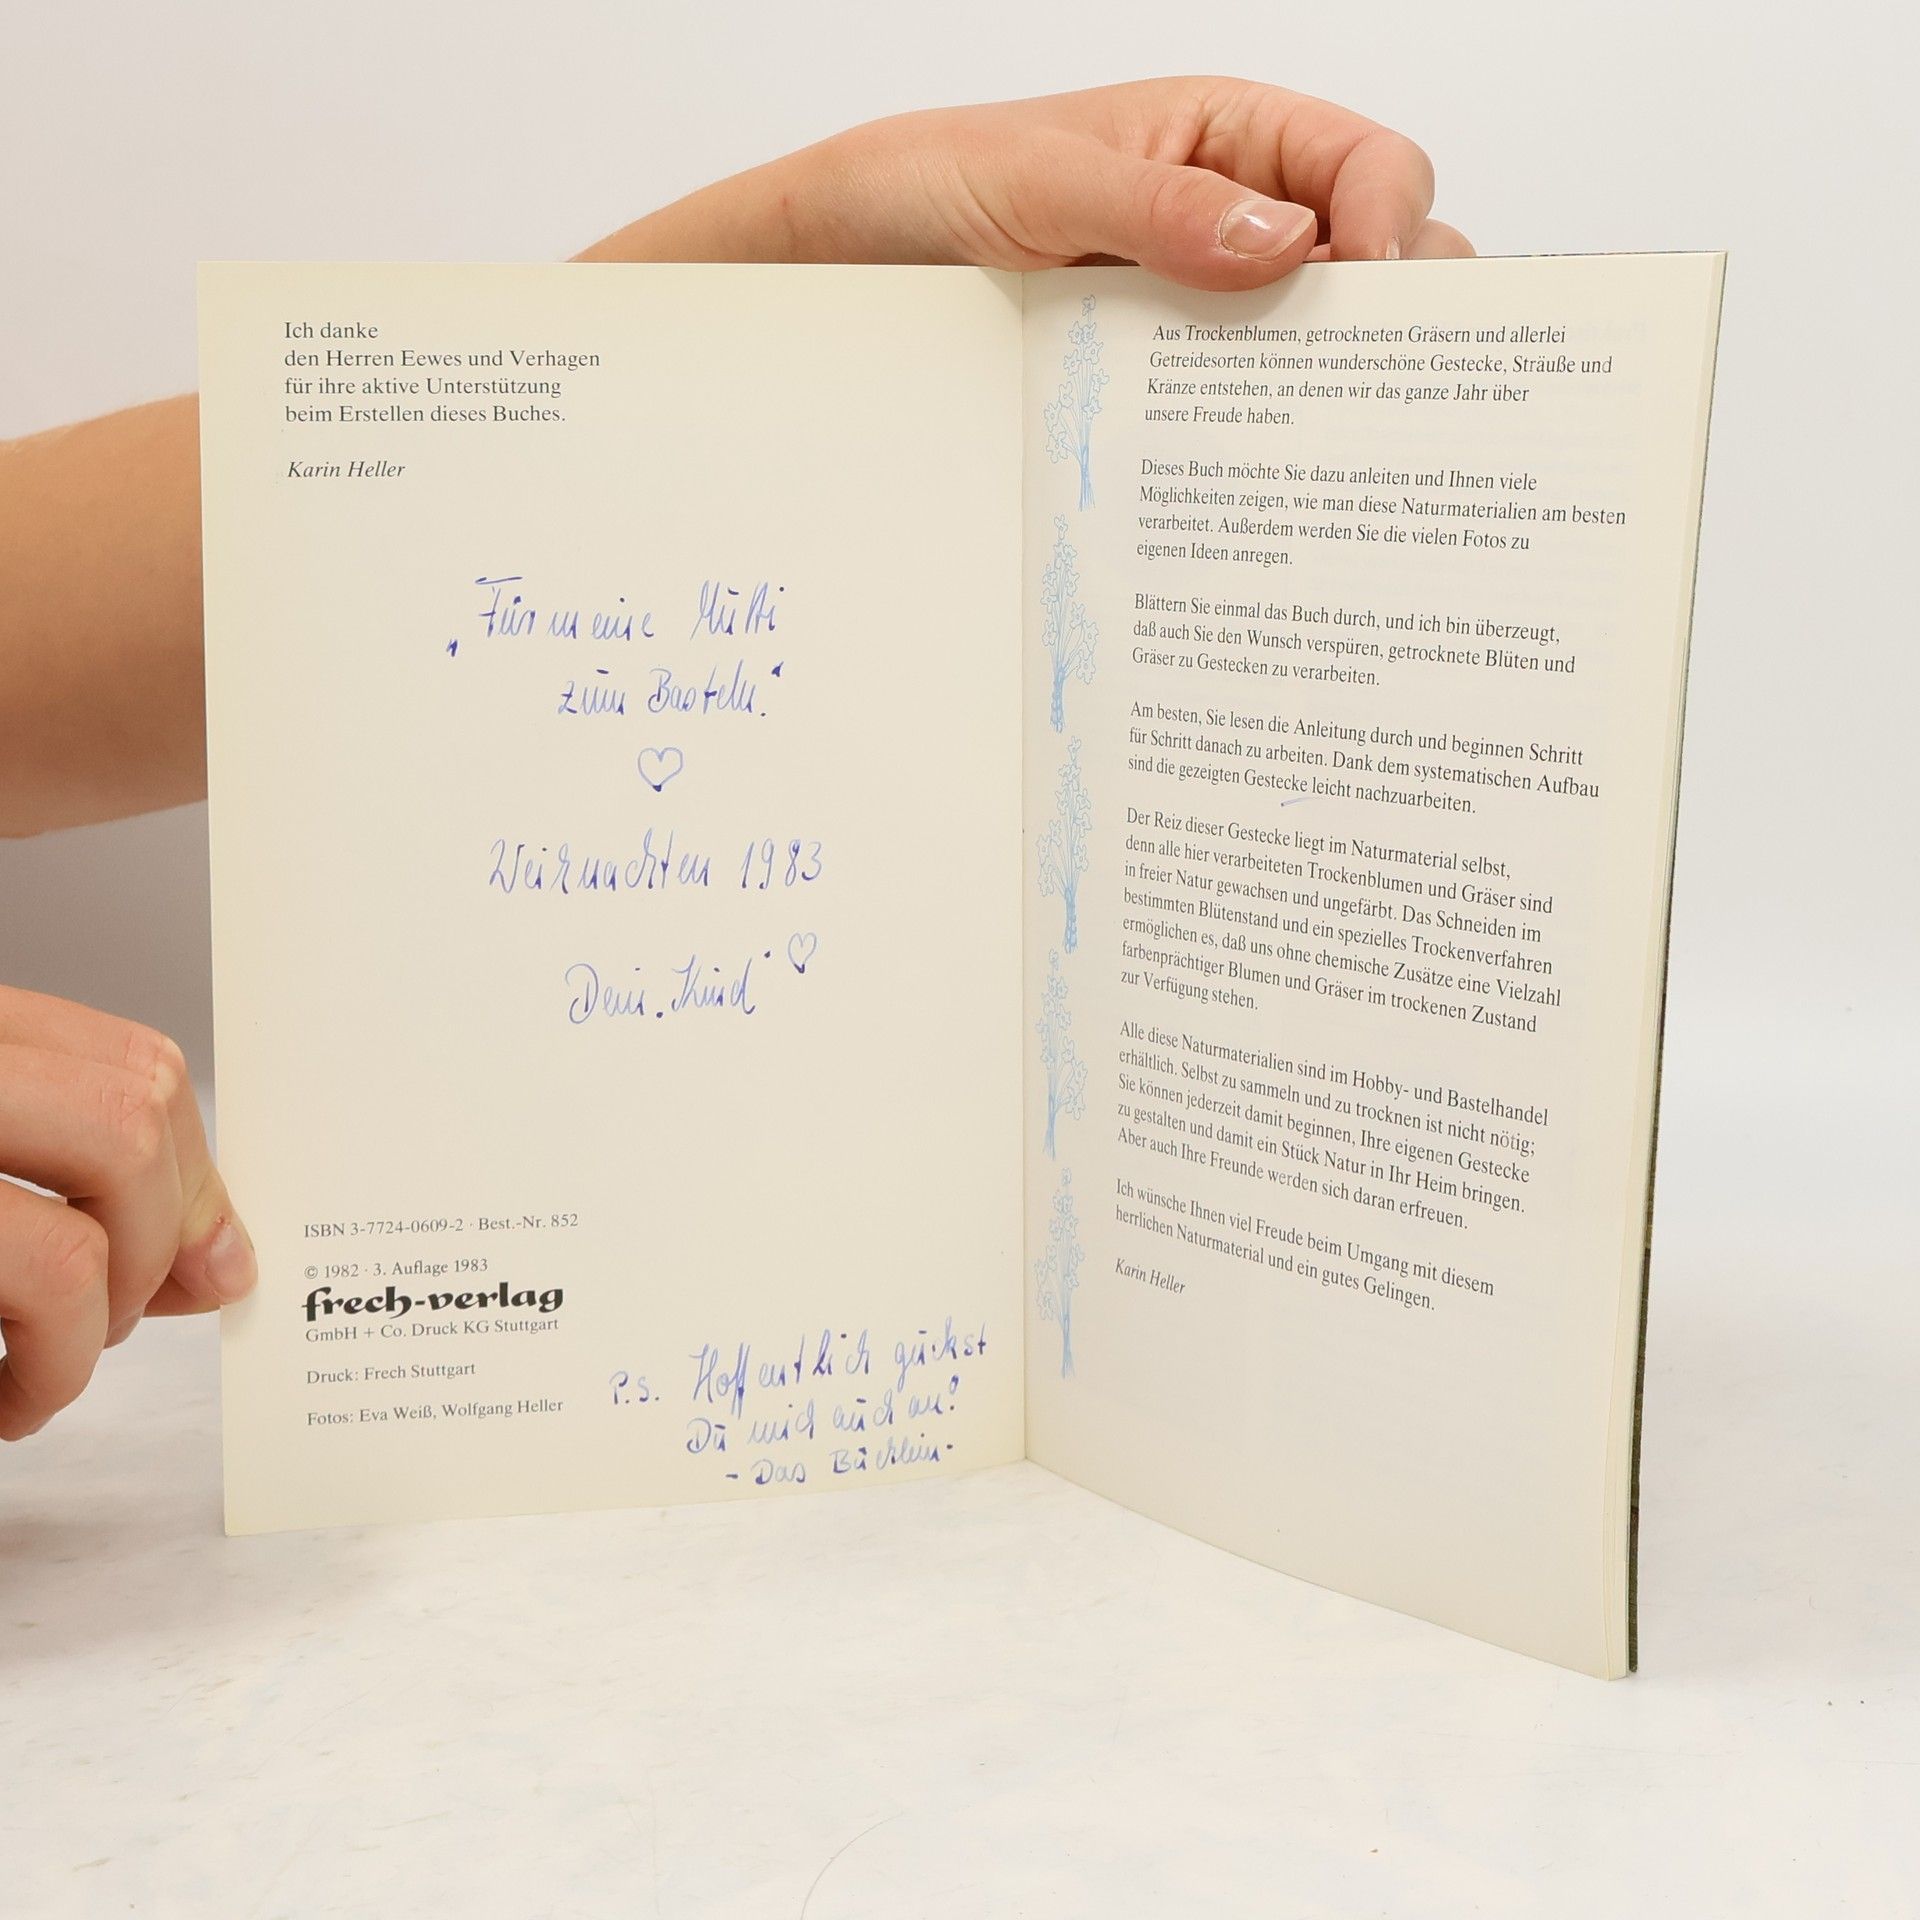 Ich danke
den Herren Eewes und Verhagen
für ihre aktive Unterstützung
beim Erstellen dieses Buches.
Karin Heller
„Für meine Mutti
zum Basteln.“
Weihnachten 1983
Dein „Kind“
ISBN 3-7724-0609-2 · Best.-Nr. 852
© 1982 · 3. Auflage 1983
frech-verlag
GmbH + Co. Druck KG Stuttgart
Druck: Frech Stuttgart
Fotos: Eva Weiß, Wolfgang Heller
P.S. Hoffentlich guckst
Du mich auch an?
- Das Büchlein -
Aus Trockenblumen, getrockneten Gräsern und allerlei
Getreidesorten können wunderschöne Gestecke, Sträuße und
Kränze entstehen, an denen wir das ganze Jahr über
unsere Freude haben.
Dieses Buch möchte Sie dazu anleiten und Ihnen viele
Möglichkeiten zeigen, wie man diese Naturmaterialien am besten
verarbeitet. Außerdem werden Sie die vielen Fotos zu
eigenen Ideen anregen.
Blättern Sie einmal das Buch durch, und ich bin überzeugt,
daß auch Sie den Wunsch verspüren, getrocknete Blüten und
Gräser zu Gestecken zu verarbeiten.
Am besten, Sie lesen die Anleitung durch und beginnen Schritt
für Schritt danach zu arbeiten. Dank dem systematischen Aufbau
sind die gezeigten Gestecke leicht nachzuarbeiten.
Der Reiz dieser Gestecke liegt im Naturmaterial selbst,
denn alle hier verarbeiteten Trockenblumen und Gräser sind
in freier Natur gewachsen und ungefärbt. Das Schneiden im
bestimmten Blütenstand und ein spezielles Trockenverfahren
ermöglichen es, daß uns ohne chemische Zusätze eine Vielzahl
farbenprächtiger Blumen und Gräser im trockenen Zustand
zur Verfügung stehen.
Alle diese Naturmaterialien sind im Hobby- und Bastelhandel
erhältlich. Selbst zu sammeln und zu trocknen ist nicht nötig;
Sie können jederzeit damit beginnen, Ihre eigenen Gestecke
zu gestalten und damit ein Stück Natur in Ihr Heim bringen.
Aber auch Ihre Freunde werden sich daran erfreuen.
Ich wünsche Ihnen viel Freude beim Umgang mit diesem
herrlichen Naturmaterial und ein gutes Gelingen.
Karin Heller